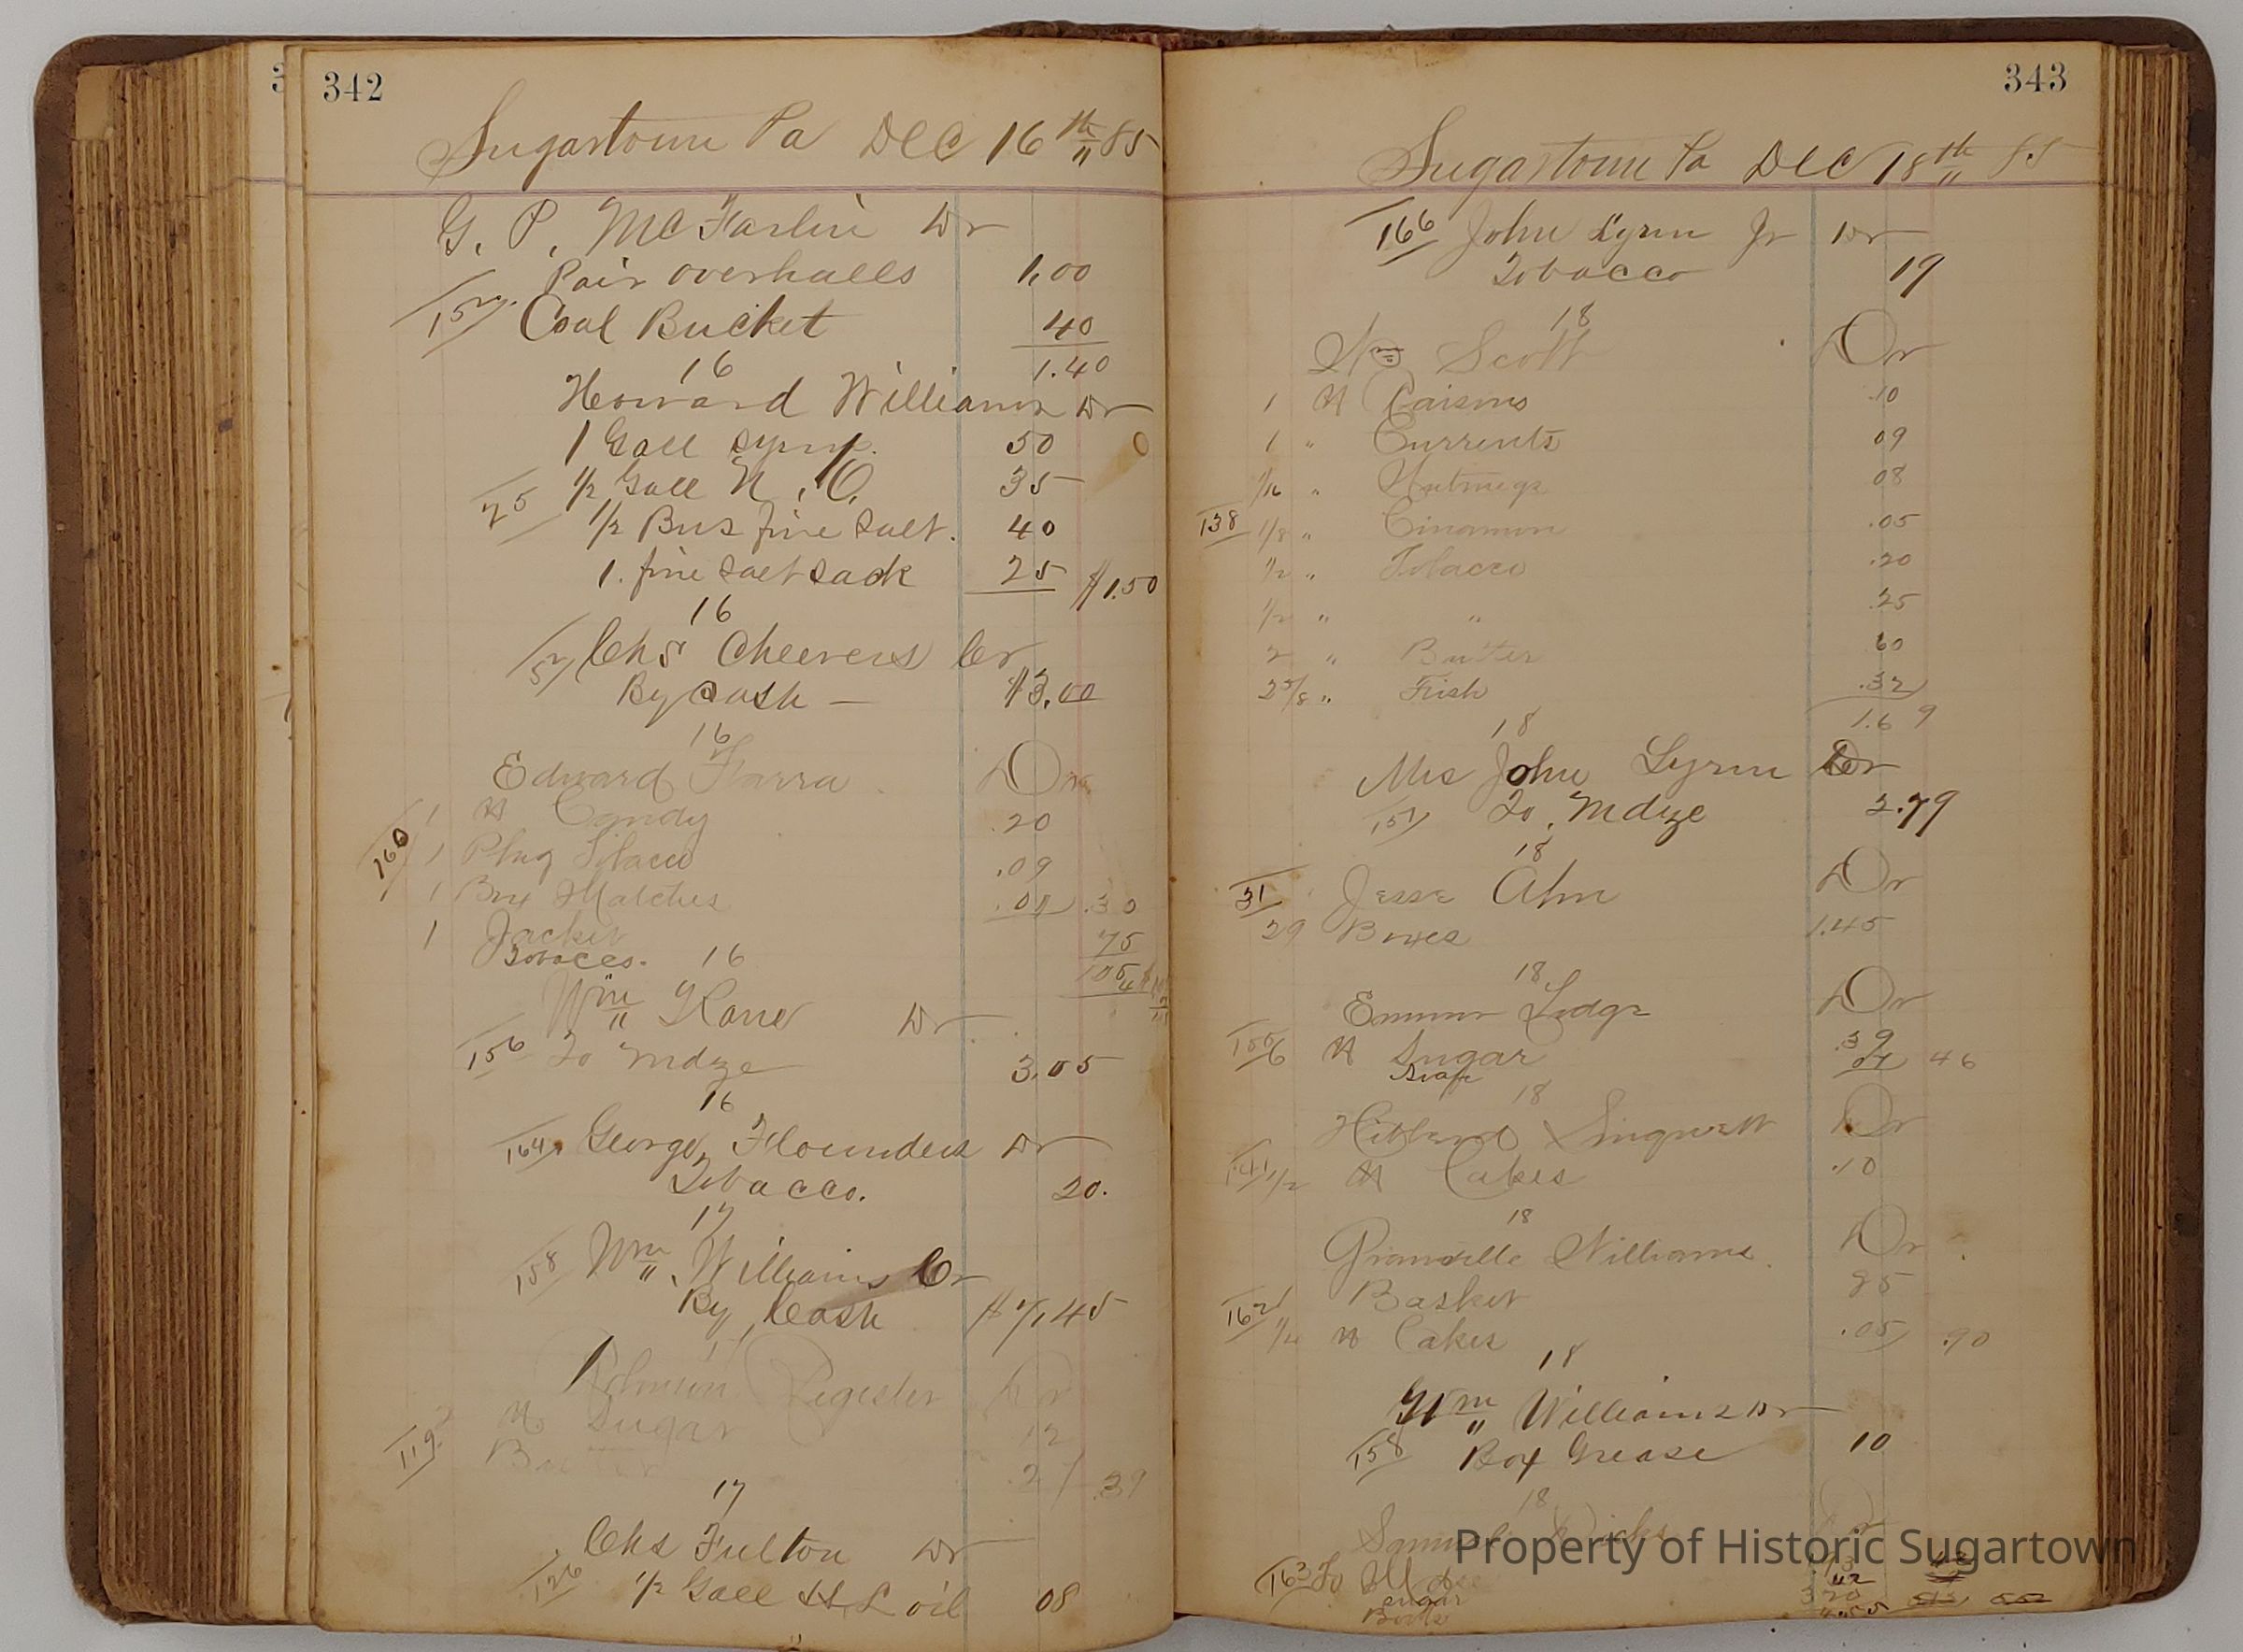 342
Sugartown Pa Dec 16th 85
G. P. McFarlin Dr
Pair overhalls 1,00
152 Coal Bucket 40
1.40
16
Howard Williams Dr
1 Gall Syrup. 50
25 1/2 Gall N, O, 35
1/2 Bus fine Salt. 40
1. fine Salt Sack 25 $1.50
16
52 Chs Cheevers Cr
By Cash — $3.00
16
Edward Farra Dr
1 ℔ Candy .20
160 1 Plug Tobacco .09
1 Box Matches .01 .30
1 Jacket 75
Tobacco. 105
16
Wm Kane Dr
156 To Mdze 3.05
16
164 George Flounders Dr
Tobacco. 20.
17
158 Wm Williams Cr
By Cash $7,45
Register
119 ℔ Sugar 12
Butter .27 .39
17
Chs Fulton Dr
126 1/2 Gall H L oil 08
343
Sugartown Pa Dec 18th 85
166 John Lynn Jr Dr
Tobacco 19
18
Wm Scott Dr
1 ℔ Raisins .10
1 " Currents 09
1/16 " Nutmegs 08
138 1/8 " Cinamon .05
1/2 " Tobacco .20
1/2 " " .25
2 " Butter 60
2 5/8 " Fish .32
1.69
18
Mrs John Lynn Dr
151 To, Mdze 2.79
18
31 Jesse Ahn Dr
29 Boxes 1.45
18
Emmor Lodge Dr
155 6 ℔ Sugar .39
Soap 07 46
18
Hibberd Dr
141 1/2 ℔ Cakes .10
18
Granville Williams. Dr
Basket 85
162 ℔ Cakes .05 .90
18
Wm Williams Dr
158 Box Grease 10
18
Samuel Dr
163 To Mdse
sugar 42
Boots 320
Property of Historic Sugartown